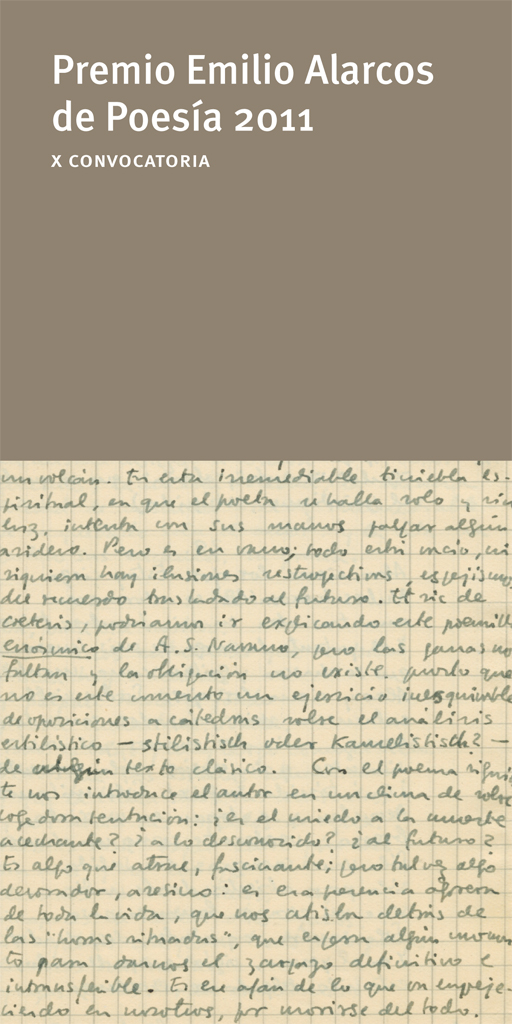 Premio Emilio Alarcos
de Poesía 2011
X CONVOCATORIA
un volcán. En esta irremediable tiniebla es-
piritual, en que el poeta se halla solo y sin
luz, intenta con sus manos palpar algún
asidero. Pero es en vano; todo está vacío, ni
siquiera hay ilusiones retrospectivas, espejismos
del recuerdo trasladado al futuro. Et sic de
ceteris, podríamos ir explicando este poemilla
enósmico de A. S. Navarro, pero las ganas nos
faltan y la obligación no existe, puesto que
no es este comento un ejercicio inesquivable
de oposiciones a cátedras sobre el análisis
estilístico — stilistisch oder Kamelistisch? —
de algún texto clásico. Con el poema siguien
te nos introduce el autor en un clima de sobre
cogedora tentación: ¿es el miedo a la muerte
acechante? ¿a lo desconocido? ¿al futuro?
Es algo que atrae, fascinante; pero tal vez algo
devorador, asesino: es esa presencia agorera
de toda la vida, que nos atisba detrás de
las "horas situadas", que espera algún momen
to para darnos el zarpazo definitivo e
intransferible. Es el afán de lo que va enveje-
ciendo en nosotros, por morirse del todo.